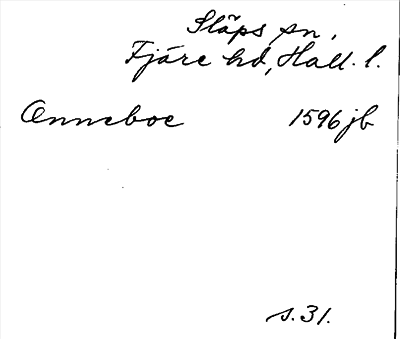 Släps sn,
Fjäre hd, Hall. l.
Onneboe 1596 jb
s. 31.